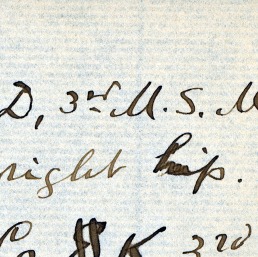 D, 3rd M. S. M
right hip.
Co H K 3rd